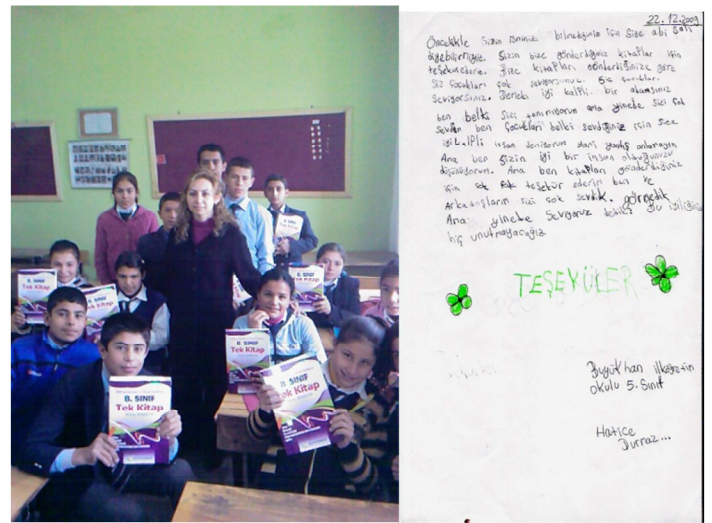 8. SINIF
Tek Kitap
8. SINIF
Tek Kitap
8. SINIF
Tek Kitap
8. SINIF
Tek Kitap
8. SINIF
Tek Kitap
22.12.2009
Öncelikle sizin isminizi bilmediğimiz için size abi
diyebilirmiyiz. Sizin bize gönderdiğiniz kitaplar için
teşekür ederiz. Bize kitapları gönderdiğinize göre
siz çocukları çok seviyorsunuz. Siz çocukları
seviyorsanız. Demeki iyi kalpli bir adamsınız
ben belki sizi tanımıyorum ama yinede sizi çok
sevdim ben çocukları belki sevdiğiniz için size
insan deniyorum yanlış anlamayın
Ama ben sizin iyi bir insan olduğunuzu
düşünüyorum. Ama ben kitapları gönderdiğiniz
için çok çok teşekür ederim ben ve
Arkadaşlarım sizi çok sevdik. görmedik
Ama yinede seviyoruz Bu iyiliğinizi
hiç unutmayacağız
TEŞEKÜLER
Büyükhan ilköğretim
okulu 5. Sınıf
Hatice
Durmaz...